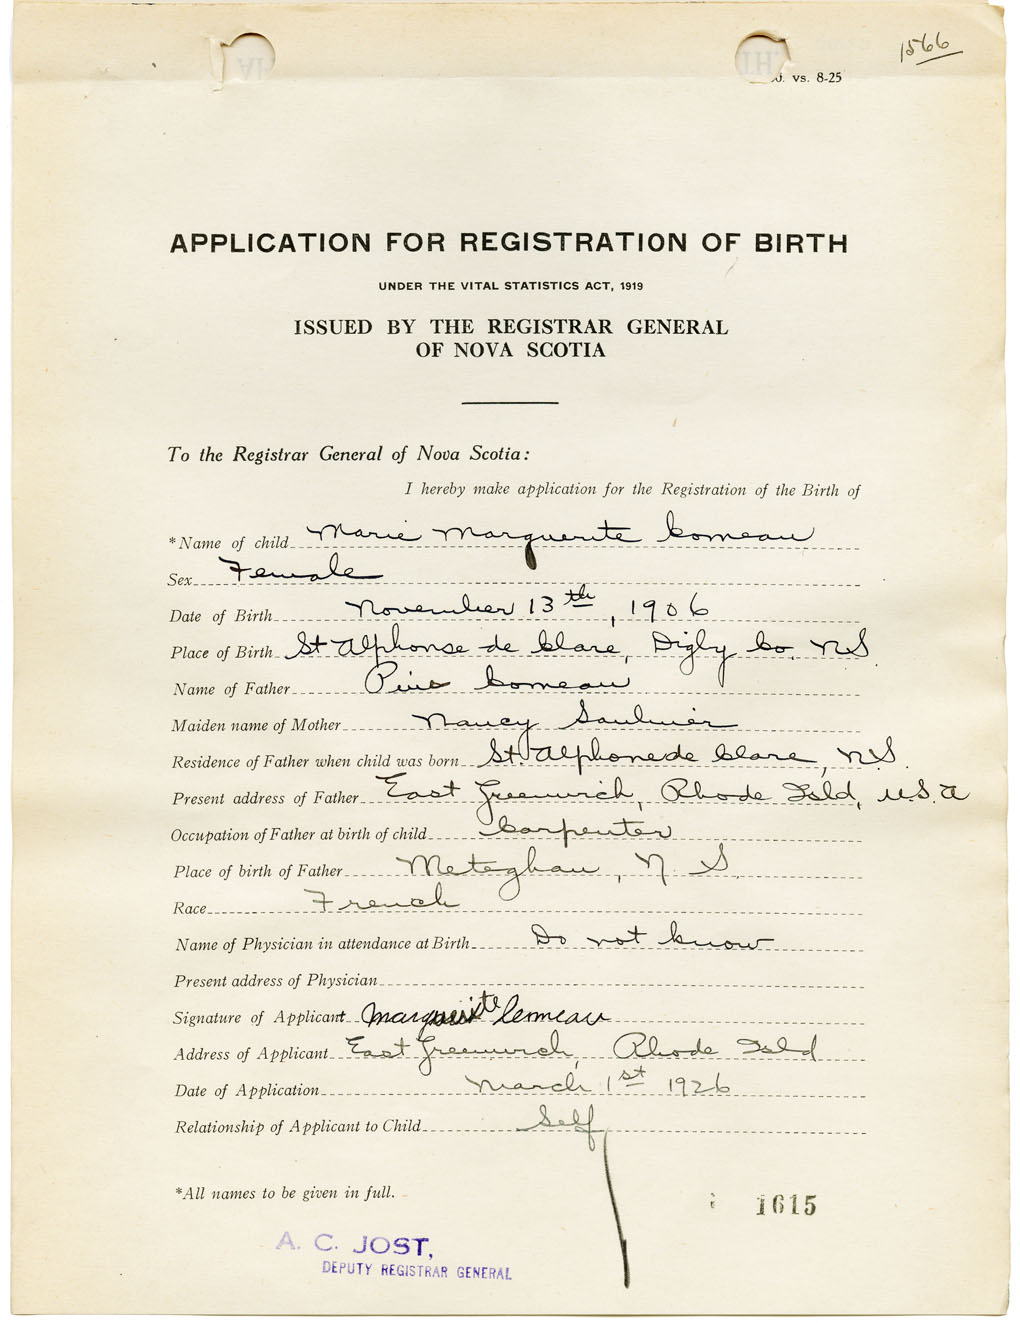 1566
vs. 8-25
APPLICATION FOR REGISTRATION OF BIRTH
UNDER THE VITAL STATISTICS ACT, 1919
ISSUED BY THE REGISTRAR GENERAL
OF NOVA SCOTIA
To the Registrar General of Nova Scotia:
I hereby make application for the Registration of the Birth of
*Name of child Marie Marguerite Comeau
Sex Female
Date of Birth November 13th, 1906
Place of Birth St Alphonse de Clare, Digby Co. NS
Name of Father Pius Comeau
Maiden name of Mother Nancy Saulnier
Residence of Father when child was born St. Alphonse de Clare, N.S.
Present address of Father East Greenwich, Rhode Isld, U.S.A
Occupation of Father at birth of child Carpenter
Place of birth of Father Meteghan, N.S.
Race French
Name of Physician in attendance at Birth Do not know
Present address of Physician
Signature of Applicant Marguerite Comeau
Address of Applicant East Greenwich, Rhode Isld
Date of Application March 1st 1926
Relationship of Applicant to Child Self
*All names to be given in full.
1615
A. C. JOST,
DEPUTY REGISTRAR GENERAL